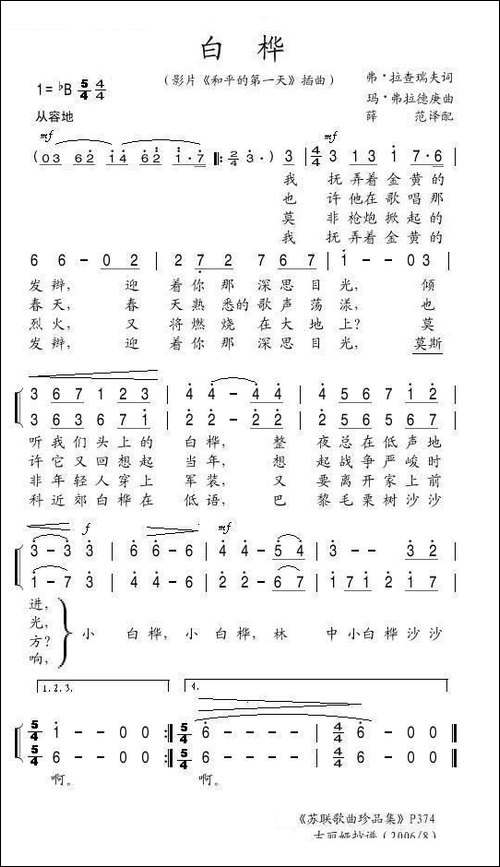 白桦
(影片《和平的第一天》插曲)
弗·拉查瑞夫词
1=♭B 5/4 4/4
玛·弗拉德庚曲
从容地
薛 范译配
mf mf
(03 62 14 62 1·7 ‖: 2/4 3·) 3 | 4/4 3 13 1 7·6 |
我 抚弄着金黄的
也 许他在歌唱那
莫 非枪炮掀起的
我 抚弄着金黄的
6 6 - 02 | 27 2 767 | 1 - - 03 |
发辫, 迎 着你那深思目光, 倾
春天, 春 天熟悉的歌声荡漾, 也
烈火, 又 将燃烧在大地上? 莫
发辫, 迎 着你那深思目光, 莫斯
3 67 1 23 | 4 4 - 4 4 | 4 56 7 12 |
3 63 67 1 | 2 2 - 2 2 | 4 56 7 12 |
听我们头上的 白桦, 整 夜总在低声地
许它又回想起 当年, 想 起战争严峻时
非年轻人穿上 军装, 又 要离开家上前
科近郊白桦在 低语, 巴 黎毛栗树沙沙
f mf
3 - 3 3 | 6 6 - 6 | 4 4 - 54 | 3 - - 32 |
1 - 7 3 | 4 4 - 6 | 2 2 - 67 | 1 71 2 17 |
进,
光,
方?
响,
小 白桦,小 白桦,林 中小白桦沙沙
1.2.3. 4.
5/4 1 - - 0 0 :‖ 5/4 6 - - - - | 4/4 6 - 0 0 ‖
5/4 6 - - 0 0 :‖ 5/4 6 - - - - | 4/4 6 - 0 0 ‖
啊。 啊。
《苏联歌曲珍品集》P374
(2006/8)